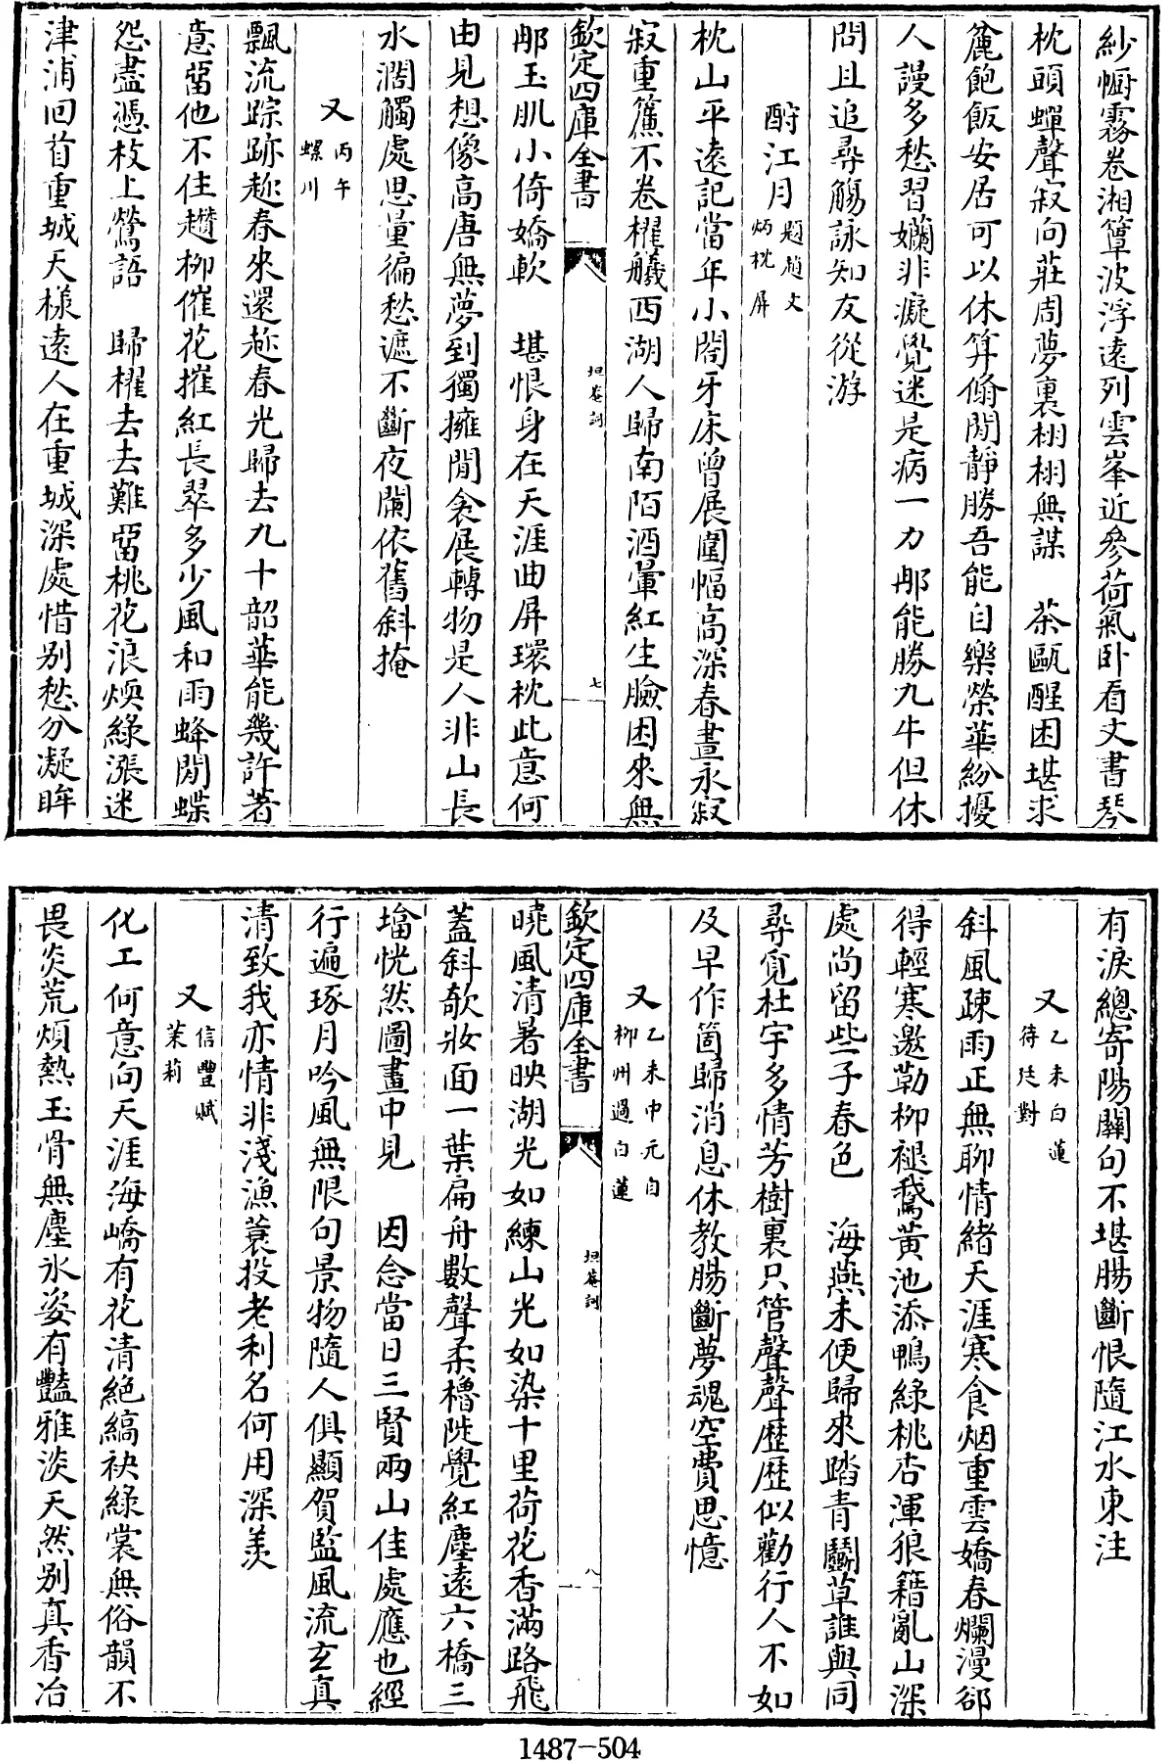 紗㡡霧卷湘簟波浮遠列雲峯近參荷氣卧看文書琴
枕頭蟬聲寂向莊周夢裏栩栩無謀　茶甌醒困堪求
麄飽飯安居可以休算翛閒靜勝吾能自樂榮華紛擾
人謾多愁習嬾非癡覺迷是病一力那能勝九牛但休
問且追尋觴詠知友從游
酹江月題趙文
炳枕屏
枕山平遠記當年小閣牙床曾展圍幅高深春晝永寂
寂重簾不卷櫂艤西湖人歸南陌酒暈紅生臉困來無
欽定四庫全書
坦菴詞
七
那玉肌小倚嬌軟　堪恨身在天涯曲屏環枕此意何
由見想像高唐無夢到獨擁閒衾展轉物是人非山長
水濶觸處思量徧愁遮不斷夜闌依舊斜掩
又丙午
螺川
飄流踪跡趂春來還趂春光歸去九十韶華能幾許著
意留他不住趲柳催花摧紅長翠多少風和雨蜂閒蝶
怨盡憑枝上鶯語　歸櫂去去難留桃花浪煖綠漲迷
津浦回首重城天樣遠人在重城深處惜别愁分凝眸
有淚總寄陽關句不堪腸斷恨隨江水東注
又乙未白蓮
待廷對
斜風疎雨正無聊情緒天涯寒食烟重雲嬌春爛漫郤
得輕寒邀勒柳褪鵞黄池添鴨綠桃杏渾狼籍亂山深
處尚留些子春色　海燕未便歸來踏青鬭草誰與同
尋覓杜宇多情芳樹裏只管聲聲歷歷似勸行人不如
及早作箇歸消息休教腸斷夢魂空費思憶
又乙未中元自
柳州過白蓮
欽定四庫全書
坦菴詞
八
曉風清暑映湖光如練山光如染十里荷花香滿路飛
蓋斜欹妝面一葉扁舟數聲柔櫓陡覺紅塵遠六橋三
墖恍然圖畫中見　因念當日三賢兩山佳處應也經
行遍琢月吟風無限句景物隨人俱顯賀監風流玄真
清致我亦情非淺漁蓑投老利名何用深羨
又信豐賦
茉莉
化工何意向天涯海嶠有花清絶縞袂綠裳無俗韻不
畏炎荒煩熱玉骨無塵氷姿有豔雅淡天然别真香冶
1487-504